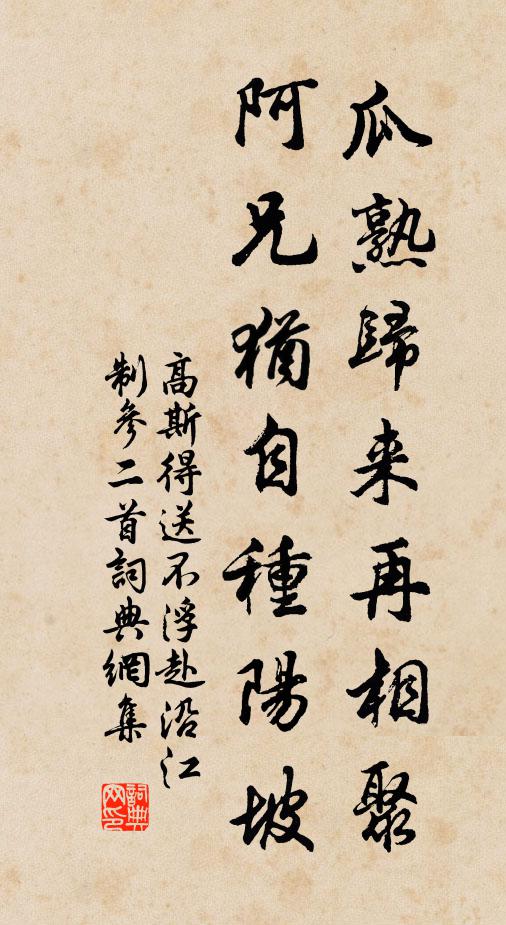 瓜熟歸来再相聚
阿兄猶自種陽坡
高斯得送不浮赴沿江
制參二首詞典網集
詞典
网印